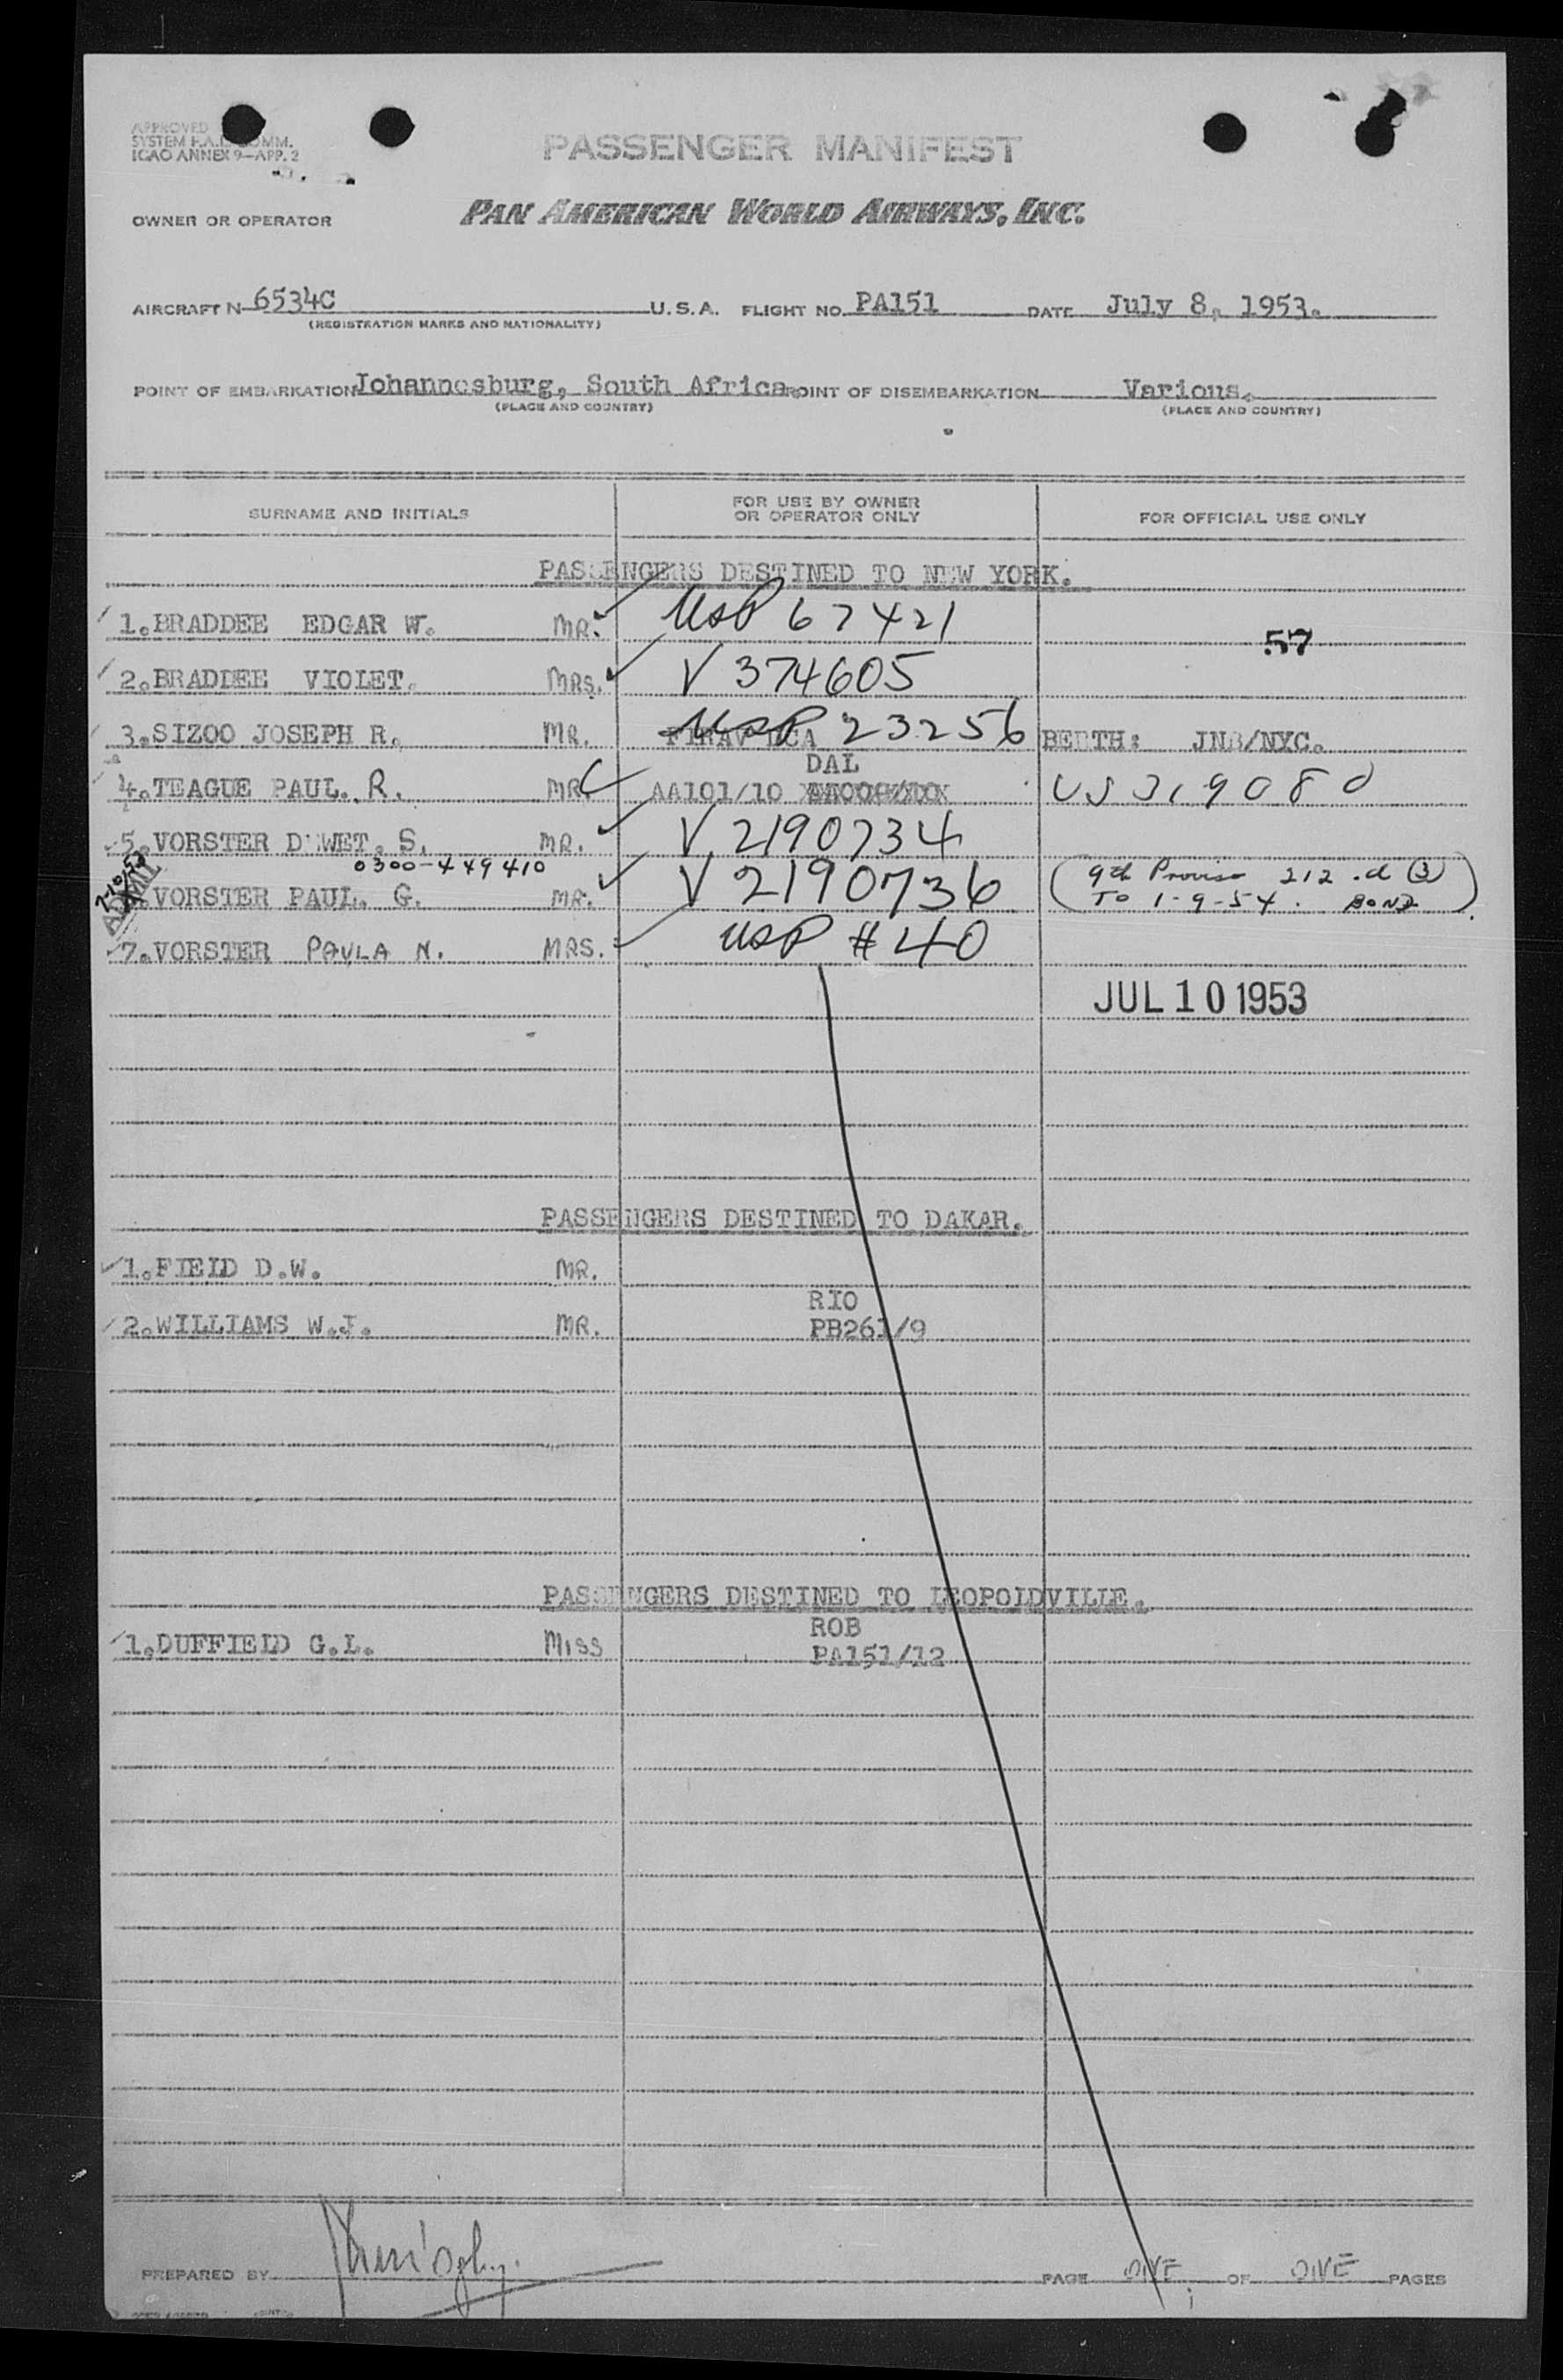 APPROVED
SYSTEM F.A.L. COMM.
ICAO ANNEX 9—APP. 2
PASSENGER MANIFEST
OWNER OR OPERATOR PAN AMERICAN WORLD AIRWAYS, INC.
AIRCRAFT N 6534C U.S.A. FLIGHT NO. PA151 DATE July 8, 1953.
(REGISTRATION MARKS AND NATIONALITY)
POINT OF EMBARKATION Johannesburg, South Africa POINT OF DISEMBARKATION Various.
(PLACE AND COUNTRY) (PLACE AND COUNTRY)
SURNAME AND INITIALS FOR USE BY OWNER OR OPERATOR ONLY FOR OFFICIAL USE ONLY
PASSENGERS DESTINED TO NEW YORK.
1. BRADDEE EDGAR W. MR. USP 67421
57
2. BRADDEE VIOLET. MRS. V 374605
3. SIZOO JOSEPH R. MR. USP 23256 BERTH: JNB/NYC.
DAL
4. TEAGUE PAUL. R. MR. AA101/10 US 319080
5. VORSTER DEWET. S. MR. V 2190734
0300-449410
7-10-53 VORSTER PAUL. G. MR. V 2190736 (9th Proviso 212.d (3)
TO 1-9-54. BOND)
7. VORSTER PAULA N. MRS. USP #40
JUL 10 1953
PASSENGERS DESTINED TO DAKAR.
1. FIELD D.W. MR.
RIO
2. WILLIAMS W.J. MR. PB261/9
PASSENGERS DESTINED TO LEOPOLDVILLE.
ROB
1. DUFFIELD G.L. MISS PA151/12
PREPARED BY PAGE ONE OF ONE PAGES